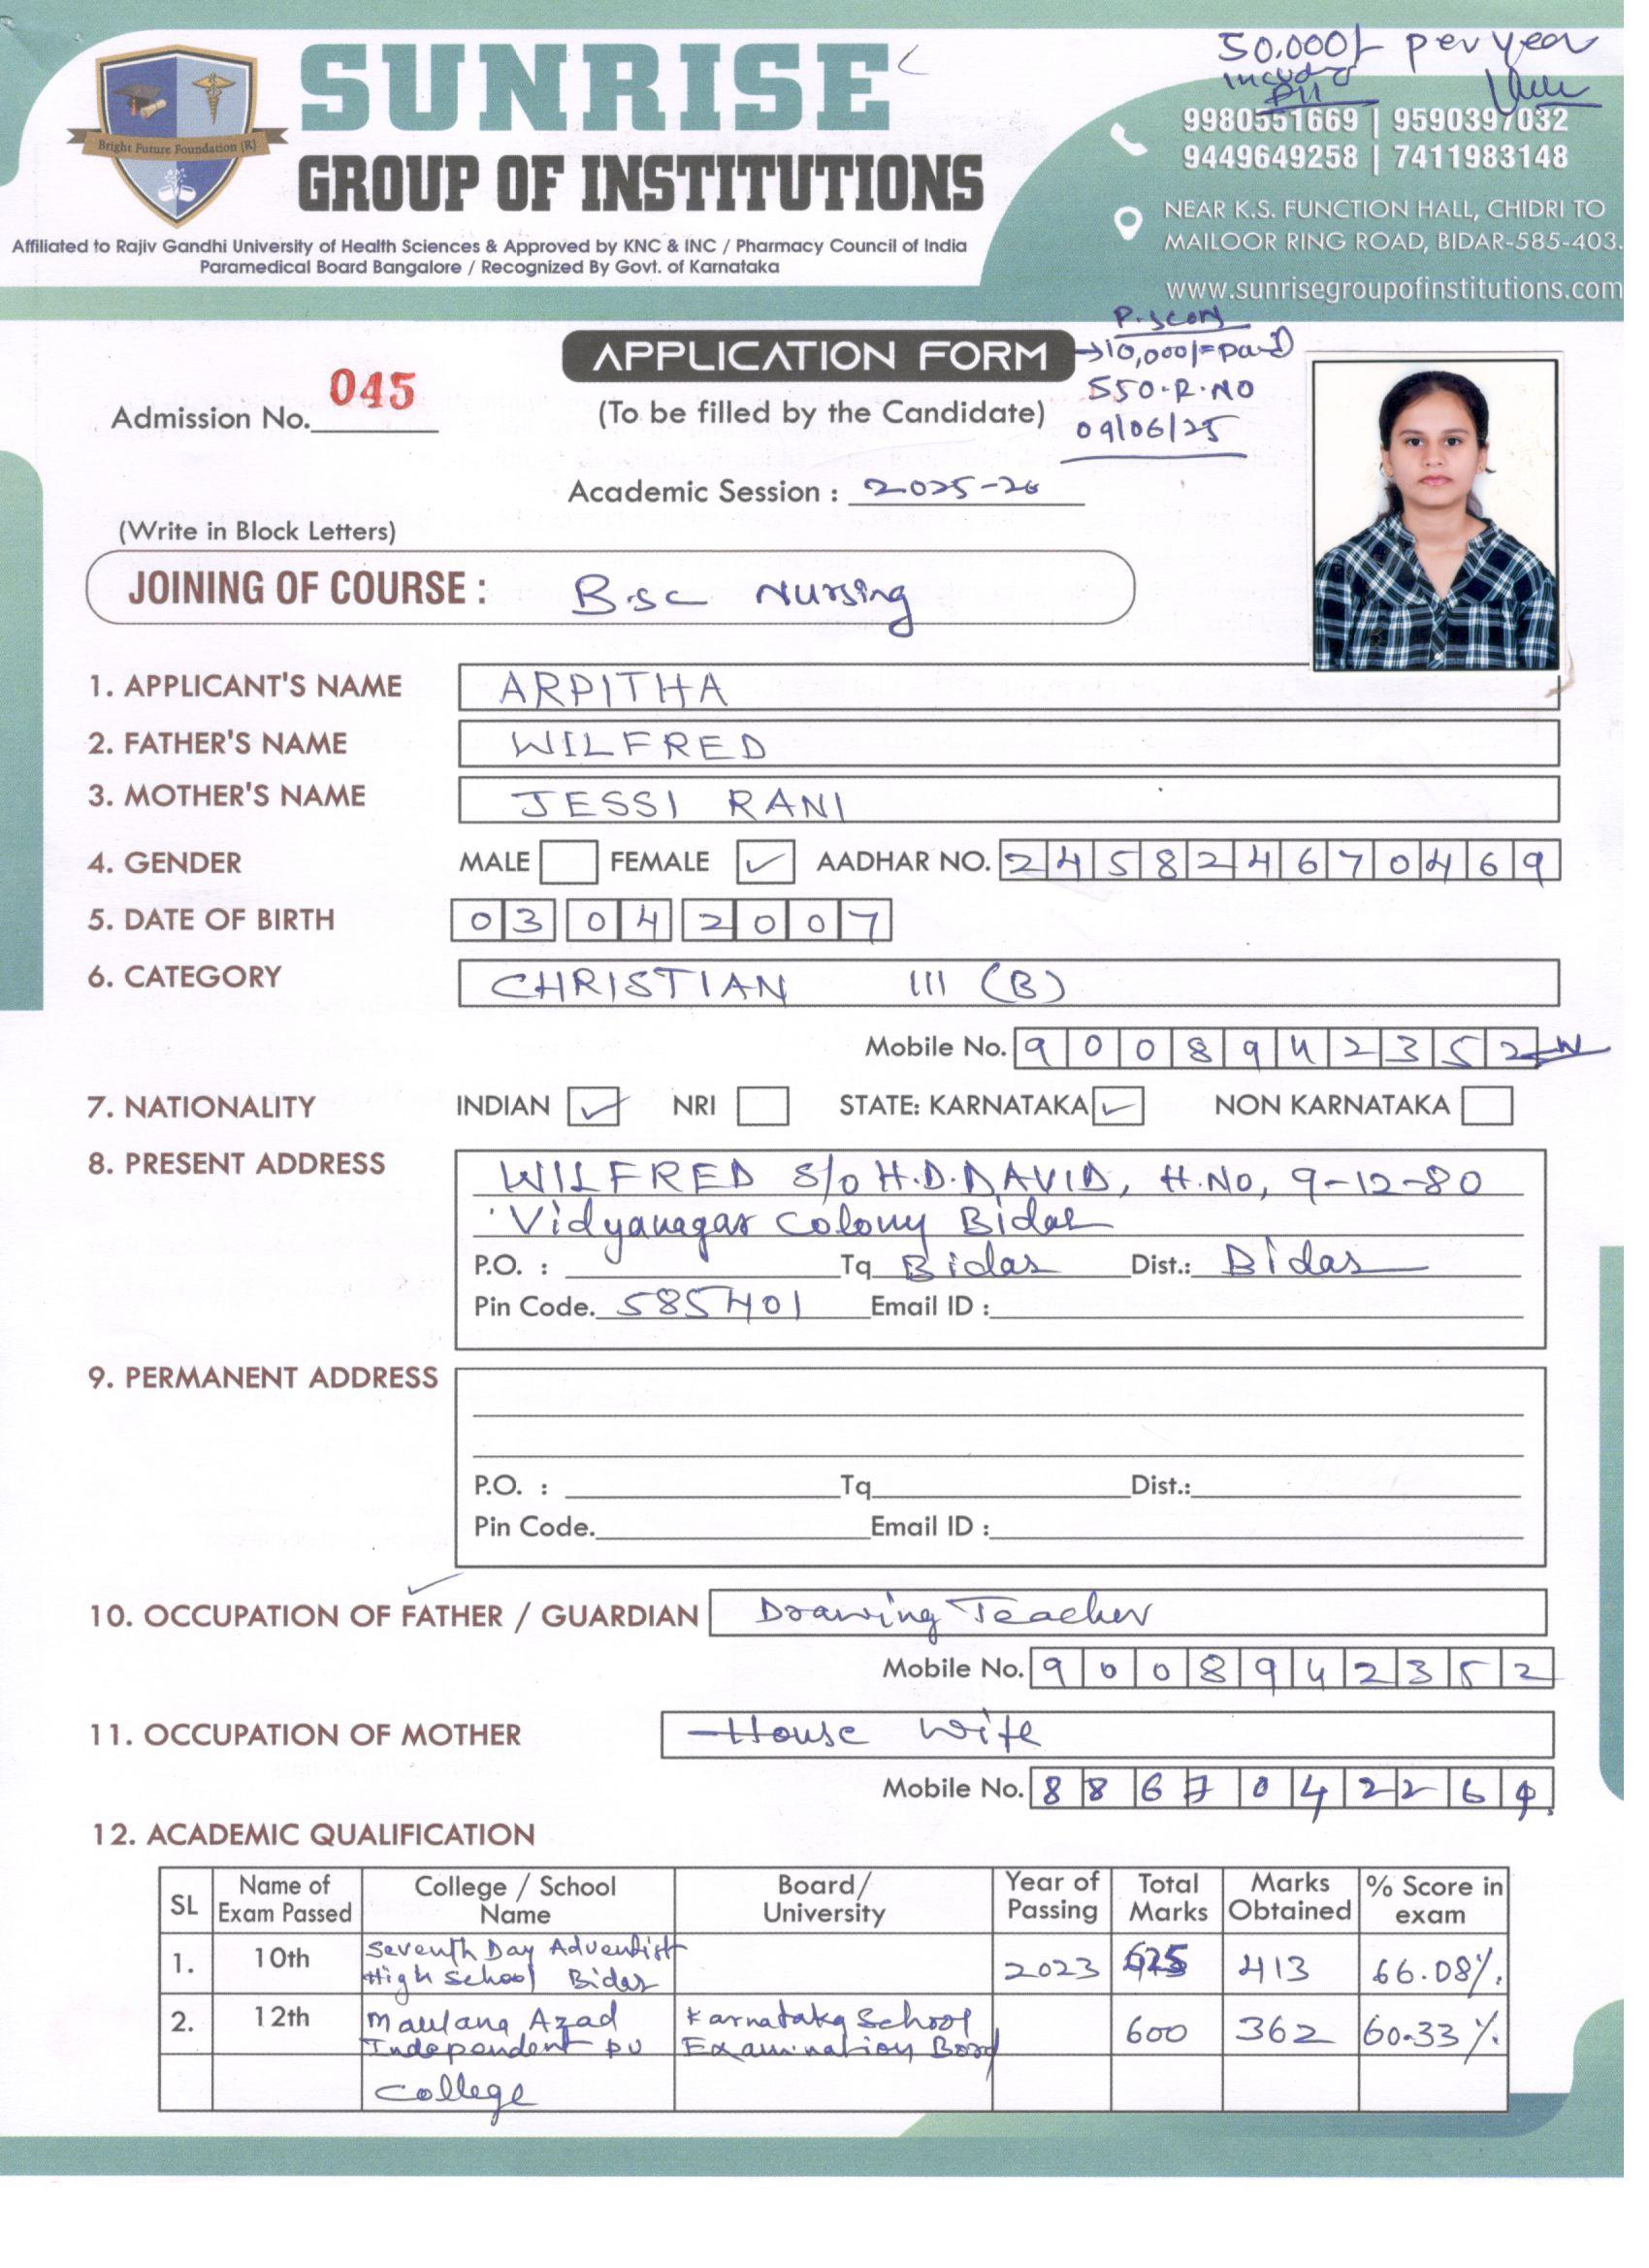 50,000/- per year
Bright Future Foundation (R)
SUNRISE
GROUP OF INSTITUTIONS
Affiliated to Rajiv Gandhi University of Health Sciences & Approved by KNC & INC / Pharmacy Council of India
Paramedical Board Bangalore / Recognized By Govt. of Karnataka
9980551669 | 9590397032
9449649258 | 7411983148
NEAR K.S. FUNCTION HALL, CHIDRI TO
MAILOOR RING ROAD, BIDAR-585-403.
www.sunrisegroupofinstitutions.com
APPLICATION FORM
→10,000/= paid
550-R.NO
09/06/25
Admission No. 045
(To be filled by the Candidate)
Academic Session : 2025-26
(Write in Block Letters)
JOINING OF COURSE : B.sc Nursing
1. APPLICANT'S NAME ARPITHA
2. FATHER'S NAME WILFRED
3. MOTHER'S NAME JESSI RANI
4. GENDER MALE FEMALE ✓ AADHAR NO. 245824670469
5. DATE OF BIRTH 03 04 2007
6. CATEGORY CHRISTIAN III (B)
Mobile No. 9008942352
7. NATIONALITY INDIAN ✓ NRI STATE: KARNATAKA ✓ NON KARNATAKA
8. PRESENT ADDRESS WILFRED S/o H.D.DAVID, H.No, 9-12-80
Vidyanagar Colony Bidar
P.O. : Tq Bidar Dist.: Bidar
Pin Code. 585401 Email ID :
9. PERMANENT ADDRESS
P.O. : Tq Dist.:
Pin Code. Email ID :
10. OCCUPATION OF FATHER / GUARDIAN Drawing Teacher
Mobile No. 9008942352
11. OCCUPATION OF MOTHER House Wife
Mobile No.
12. ACADEMIC QUALIFICATION
SL Name of Exam Passed College / School Name Board/ University Year of Passing Total Marks Marks Obtained % Score in exam
1. 10th Seventh Day Adventist High School Bidar 2023 625 413 66.08%.
2. 12th Maulana Azad Independent PU College Karnataka School Examination Board 600 362 60.33%